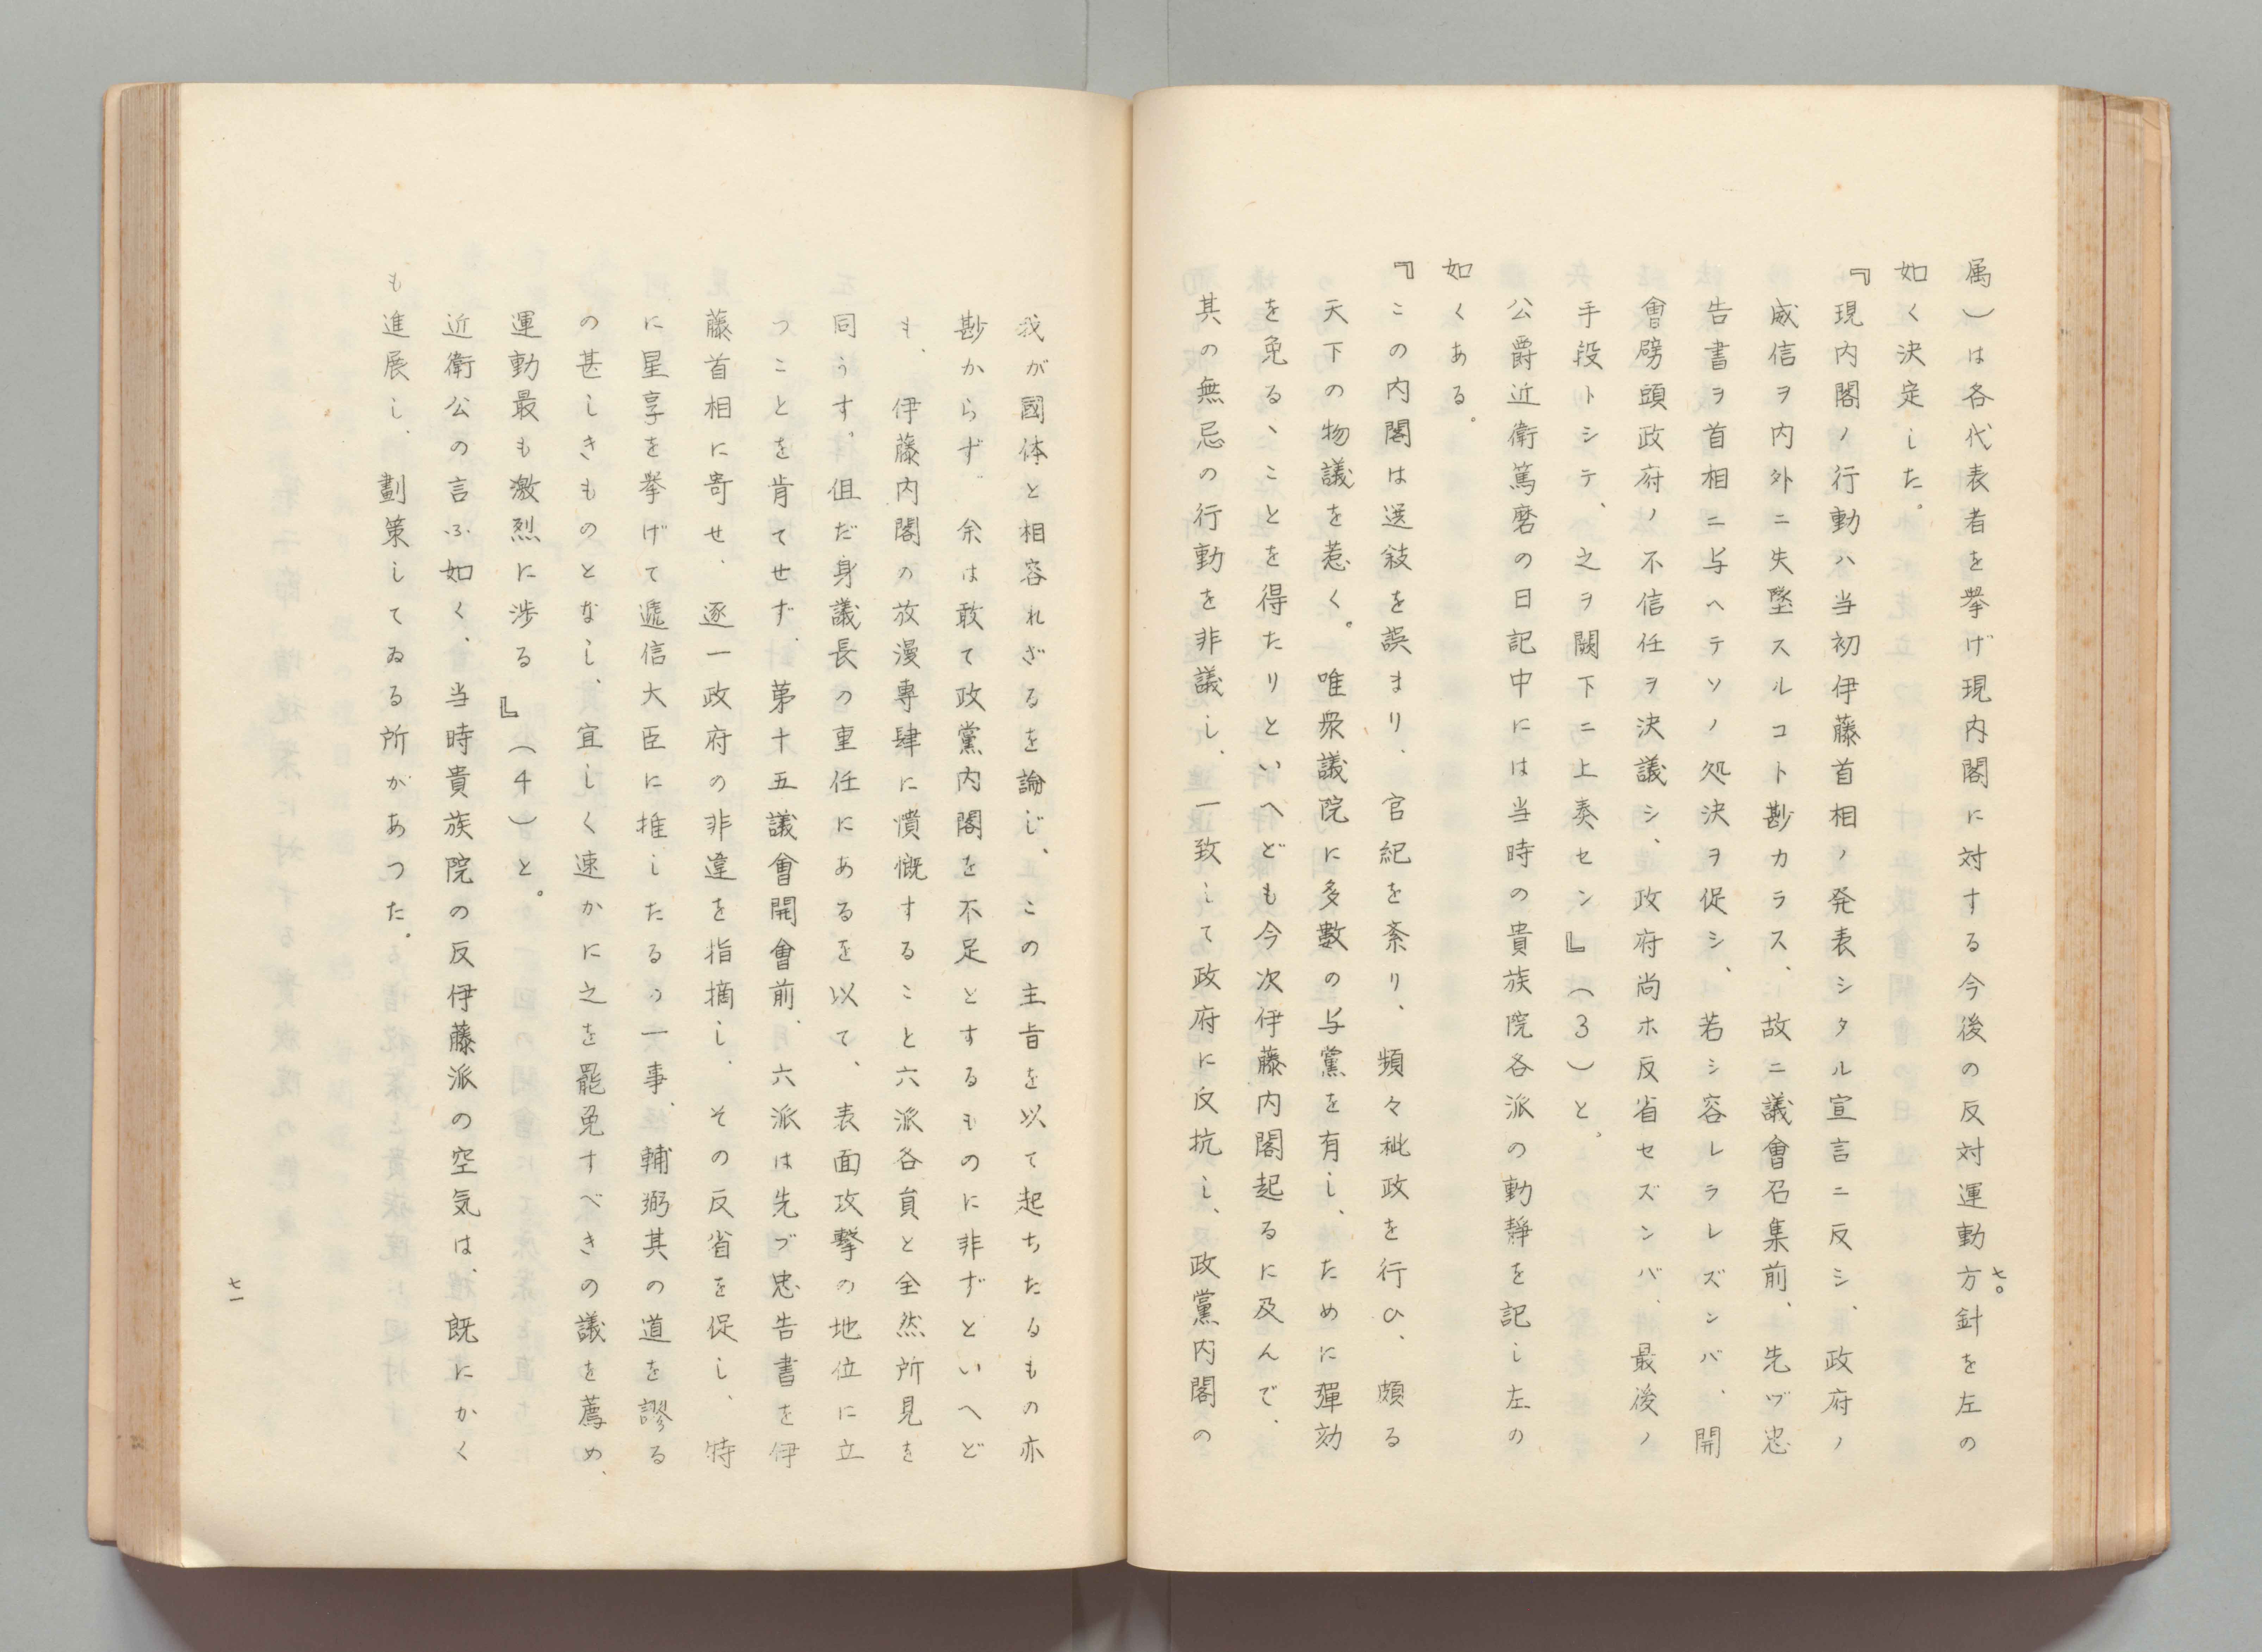 属）は各代表者を挙げ現内閣に対する今後の反対運動方針を左の
如く決定した。
『現内閣ノ行動ハ当初伊藤首相ノ発表シタル宣言ニ反シ、政府ノ
威信ヲ内外ニ失墜スルコト尠カラス、故ニ議會召集前、先ヅ忠
告書ヲ首相ニ与ヘテソノ処決ヲ促シ、若シ容レラレズンバ、開
會劈頭政府ノ不信任ヲ決議シ、政府尚ホ反省セズンバ、最後ノ
手段トシテ、之ヲ闕下ニ上奏セン』（3）と。
公爵近衛篤麿の日記中には当時の貴族院各派の動靜を記し左の
如くある。
『この内閣は選叙を誤まり、官紀を紊り、頻々秕政を行ひ、頗る
天下の物議を惹く。唯衆議院に多數の与黨を有し、ために彈劾
を免るゝことを得たりといへども今次伊藤内閣起るに及んで、
其の無忌の行動を非議し、一致して政府に反抗し、政黨内閣の
七〇
我が國体と相容れざるを論じ、この主旨を以て起ちたるもの亦
尠からず、余は敢て政黨内閣を不足とするものに非ずといへど
も、伊藤内閣の放漫專肆に憤慨すること六派各員と全然所見を
同うす。但だ身議長の重任にあるを以て、表面攻擊の地位に立
つことを肯てせず、第十五議會開會前、六派は先づ忠告書を伊
藤首相に寄せ、逐一政府の非違を指摘し、その反省を促し、特
に星亨を挙げて遞信大臣に推したるの一事、輔弼其の道を謬る
の甚しきものとなし、宜しく速かに之を罷免すべきの議を薦め、
運動最も激烈に渉る』（4）と。
近衛公の言ふ如く、当時貴族院の反伊藤派の空気は、既にかく
も進展し、劃策してゐる所があつた。
七一